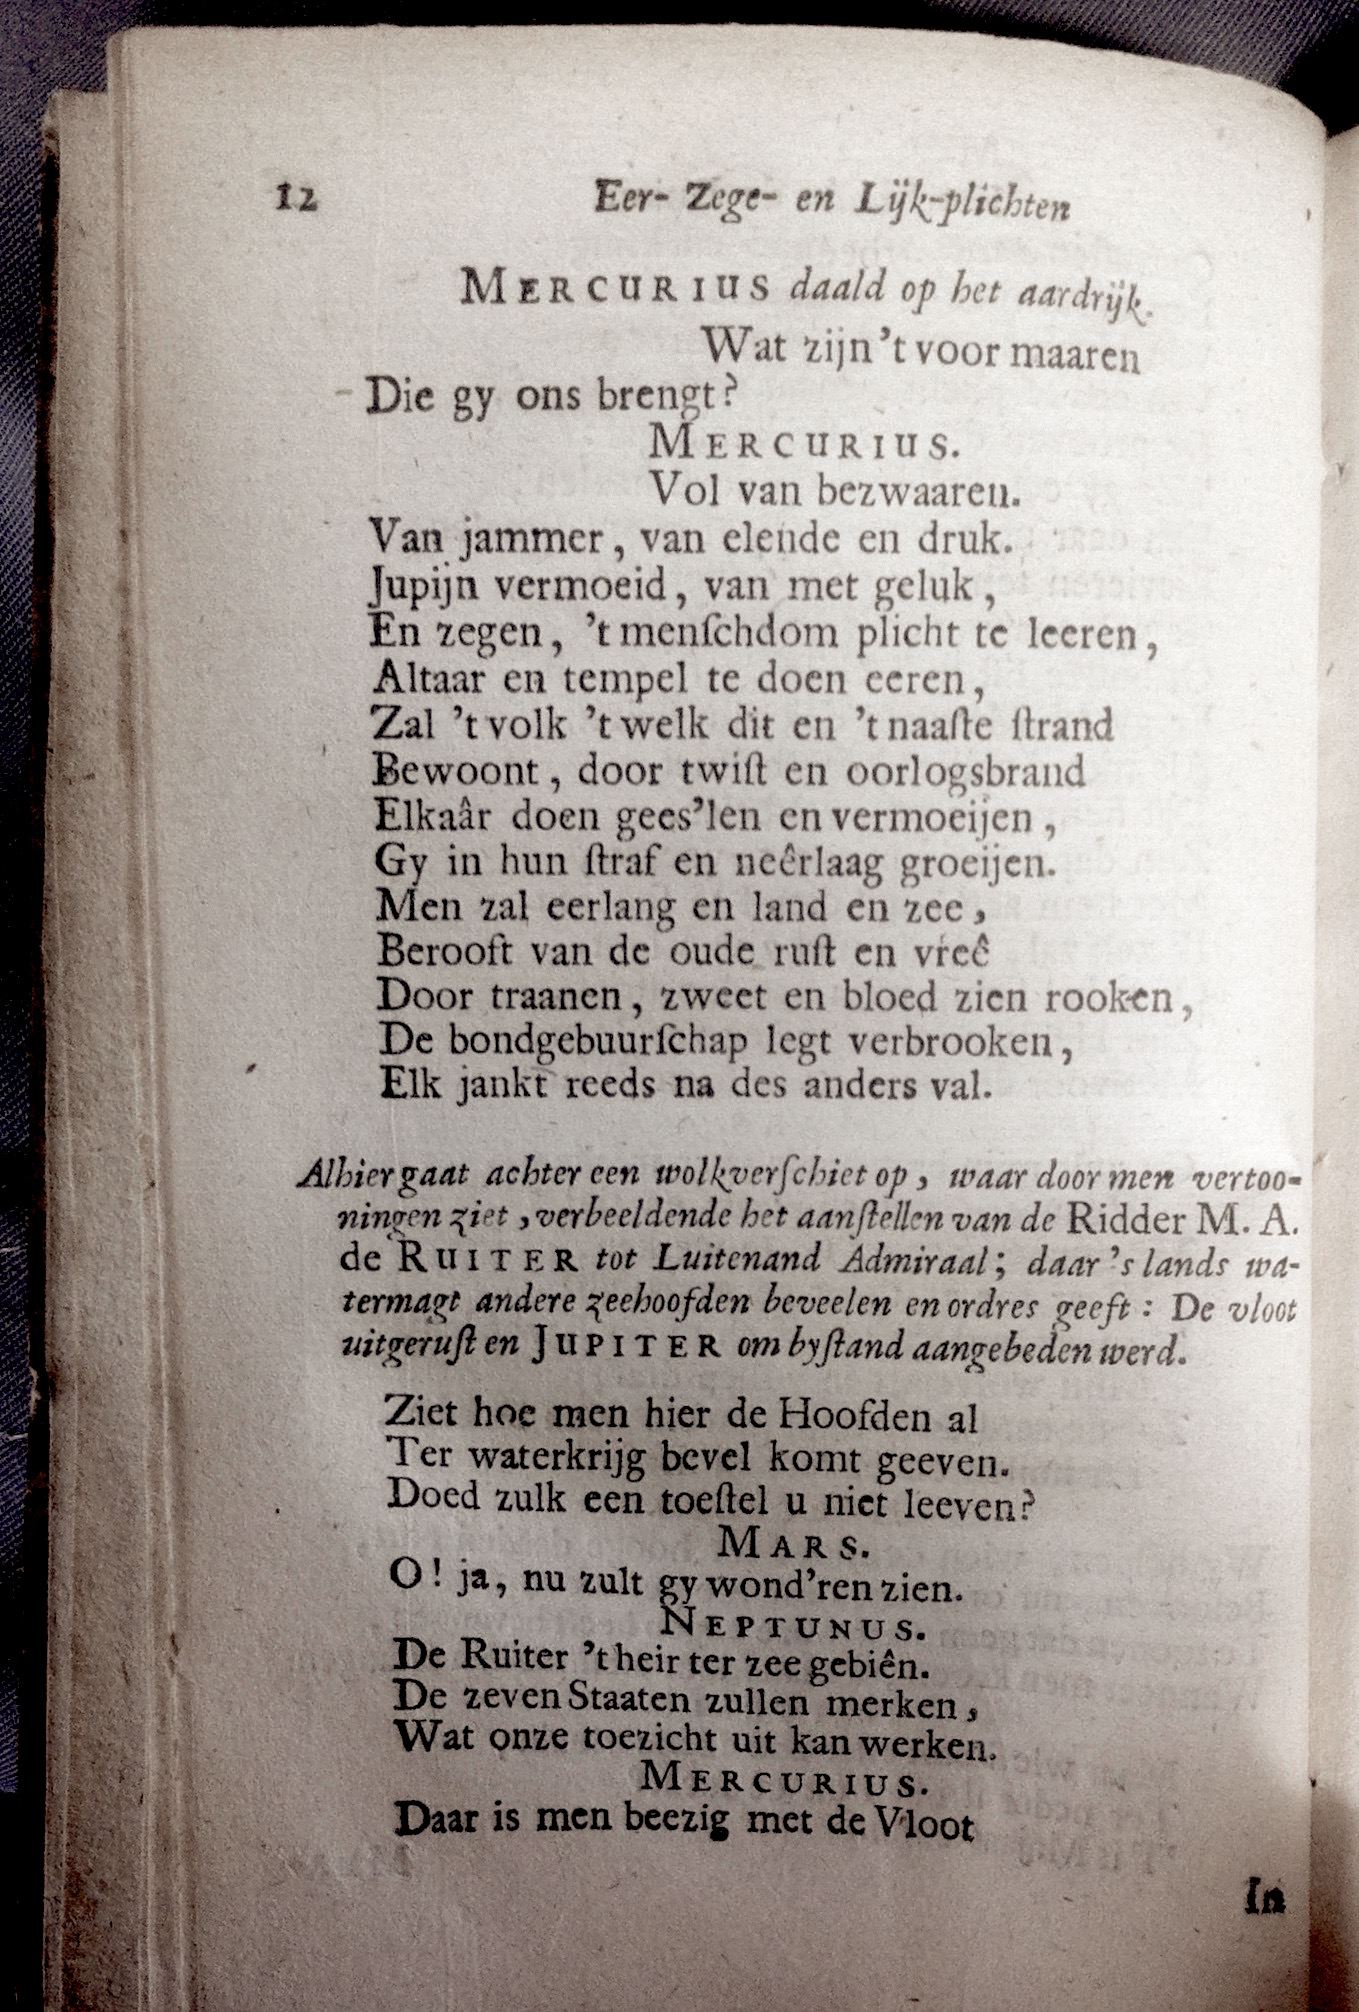 12 Eer- Zege- en Lijk-plichten
MERCURIUS daald op het aardrijk.
Wat zijn 't voor maaren
Die gy ons brengt?
MERCURIUS.
Vol van bezwaaren.
Van jammer, van elende en druk.
Jupijn vermoeid, van met geluk,
En zegen, 't menſchdom plicht te leeren,
Altaar en tempel te doen eeren,
Zal 't volk 't welk dit en 't naaſte ſtrand
Bewoont, door twiſt en oorlogsbrand
Elkaâr doen gees'len en vermoeijen,
Gy in hun ſtraf en neêrlaag groeijen.
Men zal eerlang en land en zee,
Berooft van de oude ruſt en vreê
Door traanen, zweet en bloed zien rooken,
De bondgebuurſchap legt verbrooken,
Elk jankt reeds na des anders val.
Alhier gaat achter een wolkverſchiet op, waar door men vertoo-
ningen ziet, verbeeldende het aanſtellen van de Ridder M. A.
de RUITER tot Luitenand Admiraal; daar 's lands wa-
termagt andere zeehoofden beveelen en ordres geeft: De vloot
uitgeruſt en JUPITER om byſtand aangebeden werd.
Ziet hoe men hier de Hoofden al
Ter waterkrijg bevel komt geeven.
Doed zulk een toeſtel u niet leeven?
MARS.
O! ja, nu zult gy wond'ren zien.
NEPTUNUS.
De Ruiter 't heir ter zee gebiên.
De zeven Staaten zullen merken,
Wat onze toezicht uit kan werken.
MERCURIUS.
Daar is men beezig met de Vloot
In